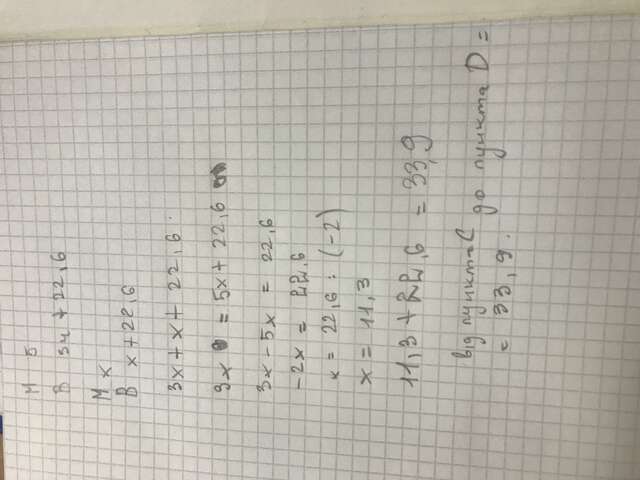 М 5
В 5x + 22,6
М x
В x + 22,6
3x + x + 22,6.
3x = 5x + 22,6
3x - 5x = 22,6
-2x = 22,6
x = 22,6 : (-2)
x = 11,3
11,3 + 22,6 = 33,9
від пункта C до пункта D =
= 33,9.